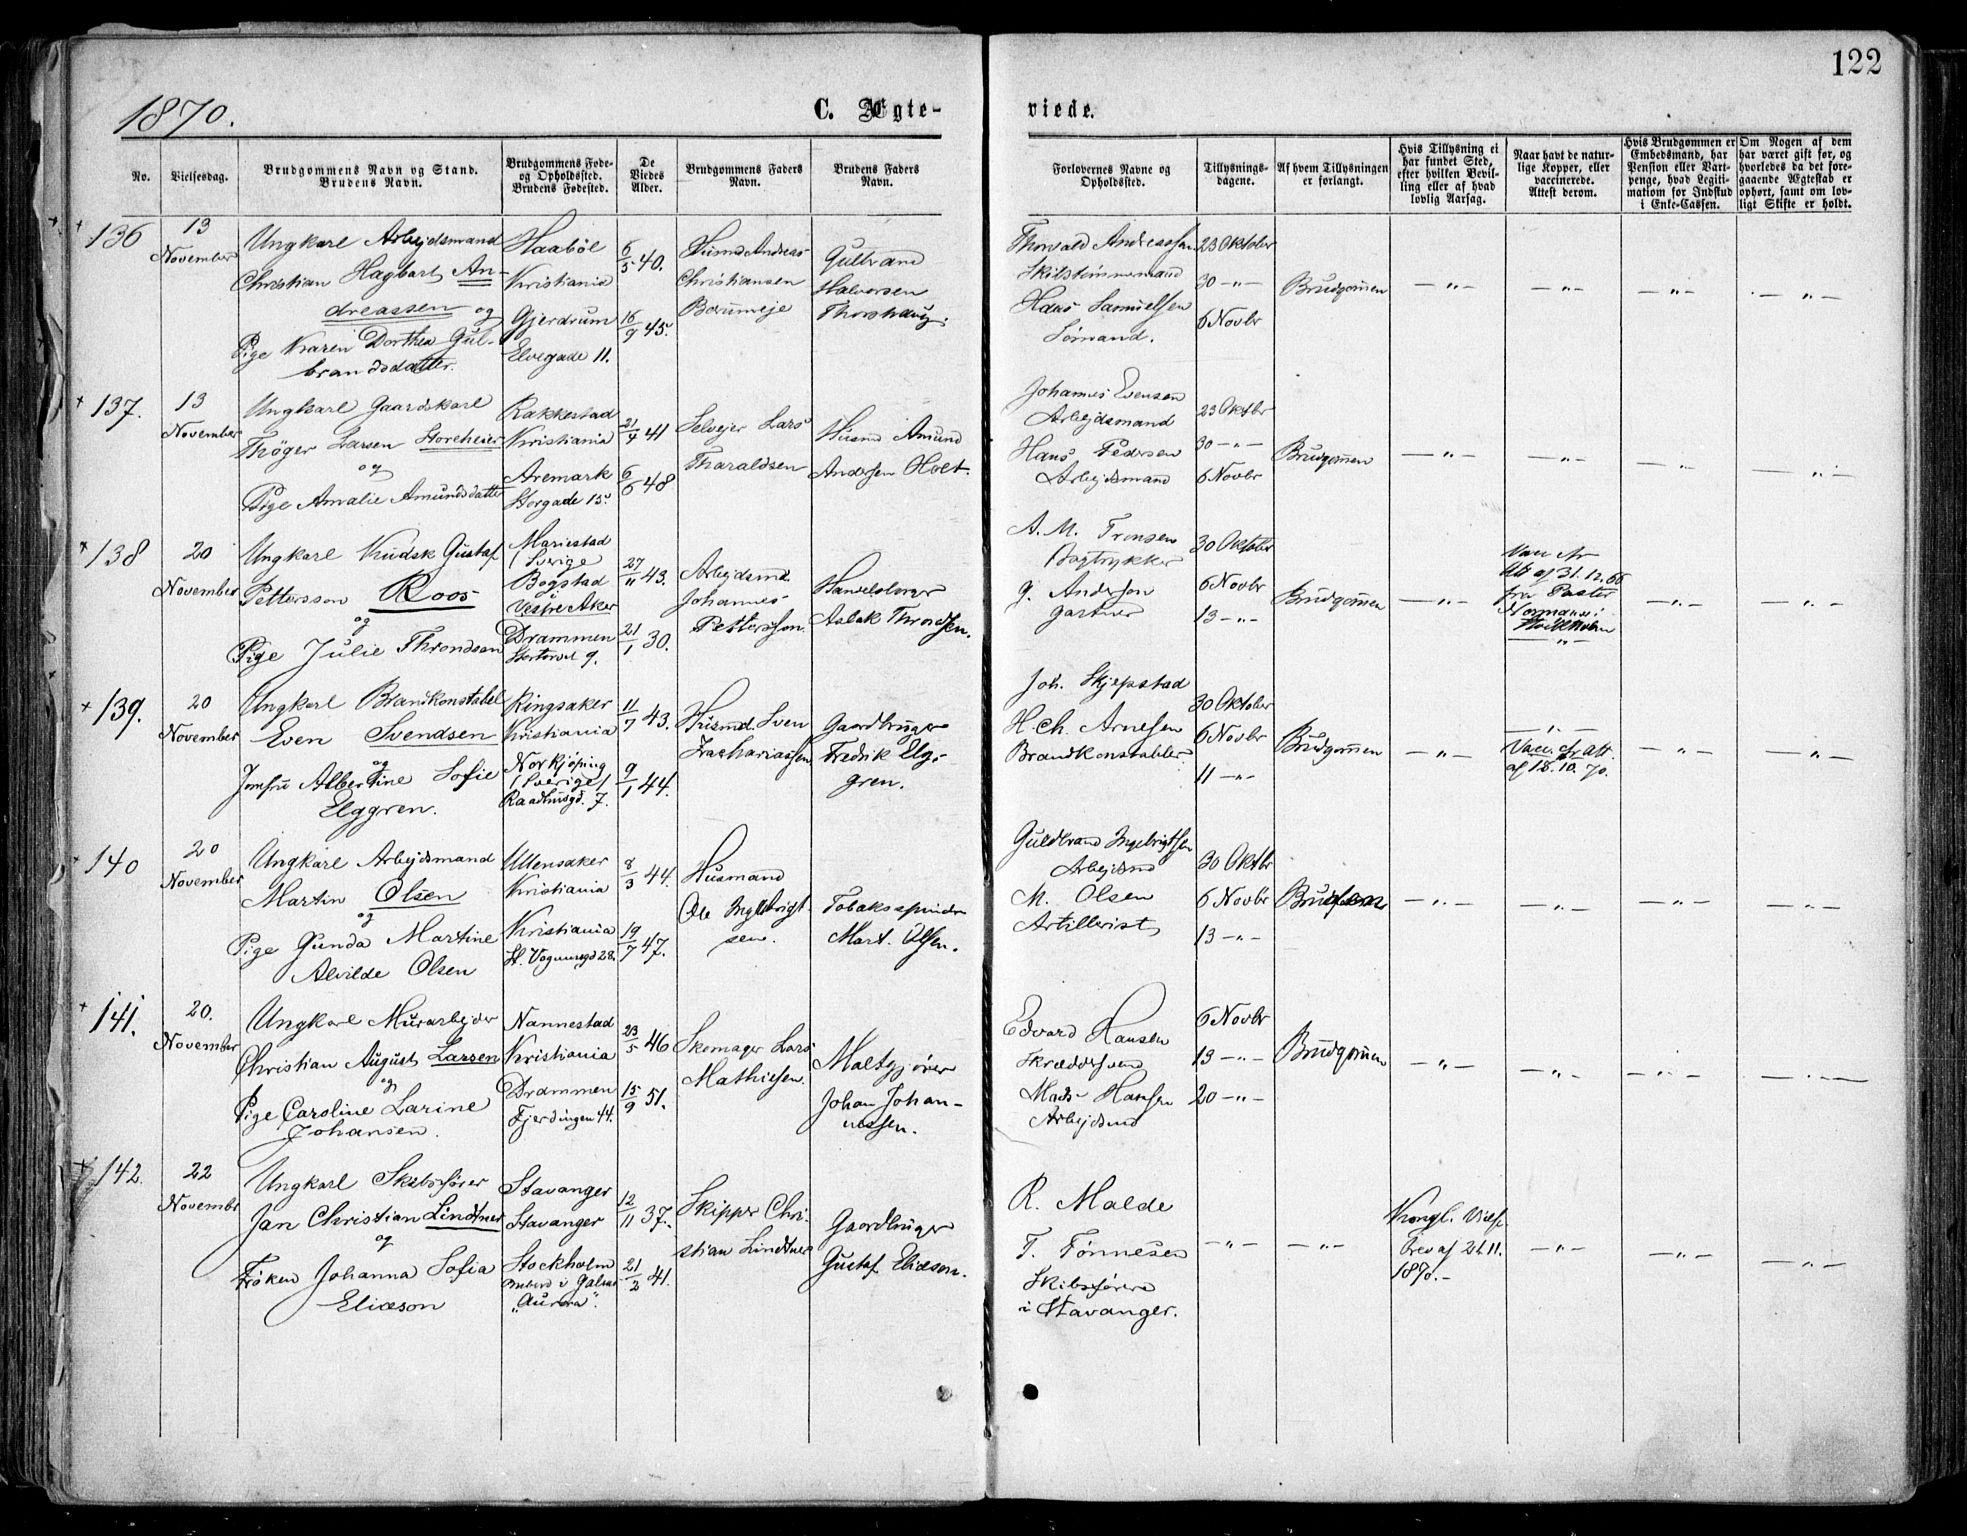 122
1870.
C. Ægte-
viede.
No.
Vielsesdag.
Brudgommens Navn og Stand.
Brudens Navn.
Brudgommens Føde-
og Opholdssted.
Brudens Fødested.
De
Viedes
Alder.
Brudgommens Faders
Navn.
Brudens Faders
Navn.
Forlovernes Navne og
Opholdssted.
Tillysnings-
dagene.
Af hvem Tillysningen
er forlangt.
Hvis Tillysning ei
har fundet Sted,
efter hvilken Bevil-
ling eller af hvad
lovlig Aarsag.
Naar havt de natur-
lige Kopper, eller
vaccinerede.
Attest derom.
Hvis Brudgommen er
Embedsmand, har
Pension eller Vart-
penge, hvad Legiti-
mation for Indskud
i Enke-Cassen.
Om Nogen af dem
har været gift før, og
hvorledes da det fore-
gaaende Ægteskab er
ophørt, samt om lov-
ligt Skifte er holdt.
136
13
November
Ungkarl Arbejdsmand
Christian Hagbart An-
dreassen og
Pige Karen Dorthea Gul-
brandsdatter.
Haabøl
Kristiania
Gjerdrum
Elvegade 11.
6/5 40.
16/9 45.
Husmd Andreas
Christiansen
Gulbrand
Halvorsen
Thorvald Andreassen
Hans Samuelsen
Sømand.
23 Oktober
30 -"-
6 Novbr
Brudgommen
-"-
-"-
-"-
-"-
137.
13
November
Ungkarl Gaardskarl
Thøger Larsen Storeheier
og
Pige Amalie Amundsdatter
Rakkestad
Kristiania
Aremark
Storgade 15.
21/4 41
6/6 48
Selvejer Lars
Tharaldsen
Husmd Amund
Andersen Holt.
Johannes Evensen
Arbejdsmand
Hans Pedersen
Arbejdsmand
23 Oktbr
30 -"-
6 Novbr
Brudgommen
-"-
-"-
-"-
-"-
138
20
November
Ungkarl Kudsk Gustaf
Pettersson Roos
og
Pige Julie Throndsen
Mariestad
(Sverige
Bogstad
i
Vestre Aker
Drammen
Stortorvet 9.
27/11 43.
21/1 30.
Arbejdsmd.
Johannes
Pettersson
Aslak Throndsen.
A. M. Tronsen
Bogtrykker
G. Anderson
Gartner
30 Oktober
6 Novbr
13 -"-
Brudgommen
-"-
Vacc Ar
Att af 31.12.66
fra Pastor
-"-
-"-
-"-
139.
20
November
Ungkarl Brandkonstabel
Even Svendsen
og
Jomfru Albertine Sofie
Elggren.
Ringsaker
Kristiania
Norkjøping
(Sverige)
Raadhusgd. 7.
11/7 43.
9/1 44.
Husmd. Sven
Zachariassen
Gaardbruger
Fredrik Elg-
gren.
Joh. Skjepstad
H. Ch. Arnesen
Brandkonstabler.
30 Oktober
6 Novbr
11 -"-
Brudgommen
-"-
-"-
Vacc. Ar att
af 18.10.70.
-"-
-"-
140
20
November
Ungkarl Arbejdsmand
Martin Olsen
og
Pige Gunda Martine
Alvilde Olsen
Ullensaker
Kristiania
Kristiania
St. Vognmgd 28.
8/3 44.
19/7 47.
Husmand
Ole Ingebrigt-
sen.
Tobaksspinder
Mart. Olsen.
Guldbrand Ingebrigtsen
Arbejdsmd
M. Olsen
Artillerist
30 Oktbr
6 Novbr
13 -"-
-"-
-"-
-"-
-"-
141.
20.
November
Ungkarl Murarbejder
Christian August Larsen
og
Pige Caroline Larine
Johansen.
Nannestad
Kristiania
Drammen
Fjerdingen 44.
23/5 46
15/9 51.
Skomager Lars
Mathiesen.
Maltgjører
Johan Johan-
nessen.
Edvard Hansen
Skræddersvend
Mads Hansen
Arbejdsmd
6 Novbr
13 -"-
20 -"-
Brudgommen
-"-
-"-
-"-
-"-
142.
22
November
Ungkarl Skibsfører
Jan Christian Lindtner
og
Frøken Johanna Sofia
Eliæson
Stavanger
Stavanger
Stockholm
ombord i Galeas
"Aurora".
12/11 37.
21/2 41.
Skipper Chri-
stian Lindtner
Gaardbruger
Gustaf Eliæson.
R. Malde
T. Tønnesen
Skibsførere
i Stavanger.
-"-
-"-
Kongl. Vielse
brev af 21.11.
1870.-
-"-
-"-
-"-